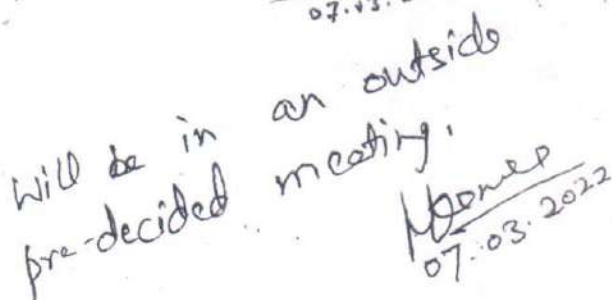 07.03.
Will be in an outside
pre-decided meeting.
07.03.2022